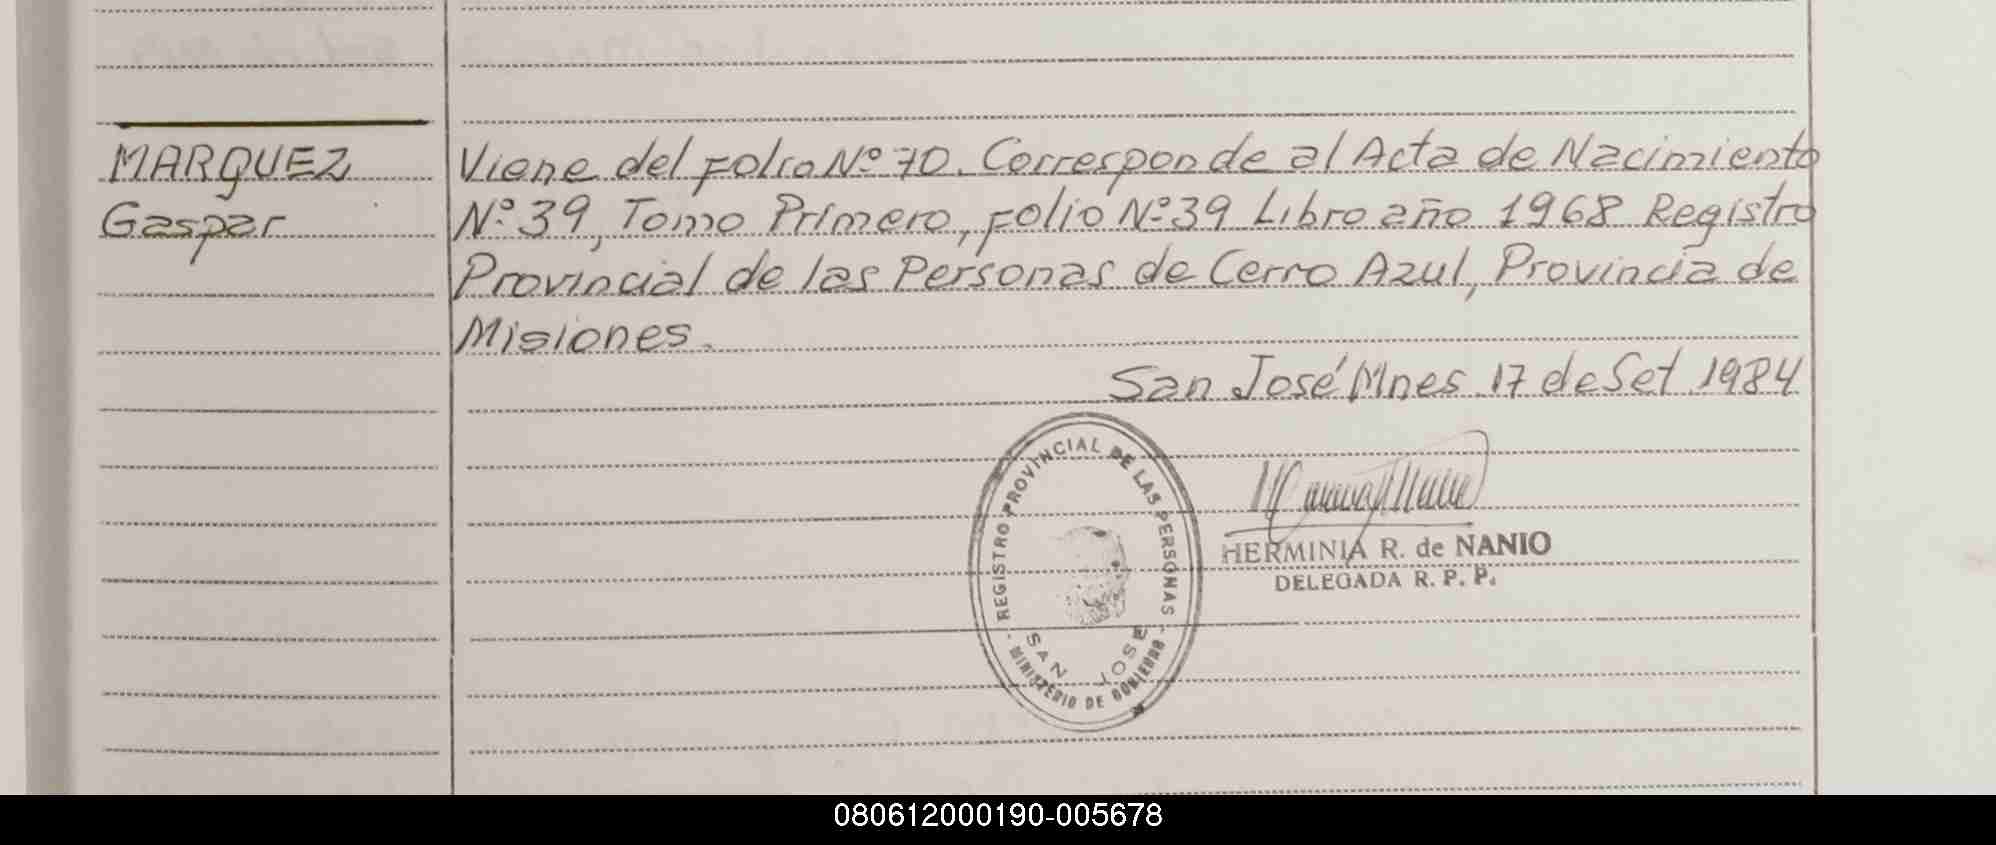 MARQUEZ
Gaspar
Viene del folio Nº 70. Corresponde al Acta de Nacimiento
Nº 39, Tomo Primero, folio Nº 39 Libro año 1968 Registro
Provincial de las Personas de Cerro Azul, Provincia de
Misiones.
San José Mnes 17 de Set 1984
REGISTRO PROVINCIAL DE LAS PERSONAS
SAN JOSE
MINISTERIO DE GOBIERNO
HERMINIA R. de NANIO
DELEGADA R. P. P.
080612000190-005678